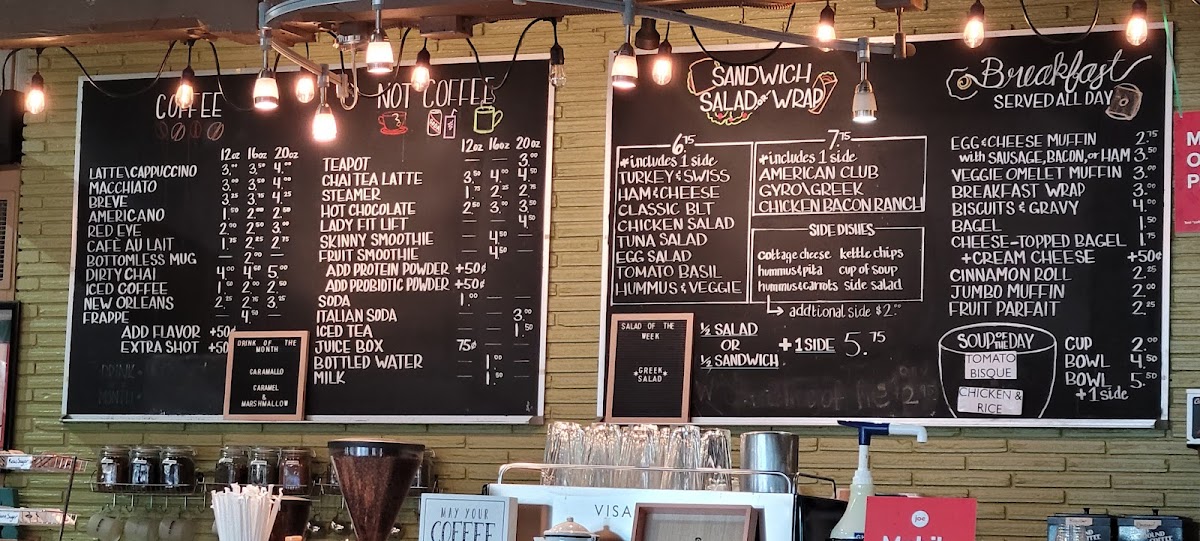 COFFEE
12oz 16oz 20oz
LATTE\CAPPUCCINO 3.00 3.50 4.00
MACCHIATO 3.00 3.50 4.00
BREVE 3.25 3.75 4.25
AMERICANO 1.50 2.00 2.50
RED EYE 2.00 2.50 3.00
CAFÈ AU LAIT 1.75 2.25 2.75
BOTTOMLESS MUG — 2.00 —
DIRTY CHAI 4.00 4.50 5.00
ICED COFFEE 1.50 2.00 2.50
NEW ORLEANS 2.25 2.75 3.25
FRAPPE — 4.50 —
ADD FLAVOR +50¢
EXTRA SHOT +50
DRINK OF THE
MONTH
CARAMALLO
CARAMEL
&
MARSHMALLOW
NOT COFFEE
12oz 16oz 20oz
TEAPOT — — 3.00
CHAI TEA LATTE 3.50 4.00 4.50
STEAMER 1.75 2.25 2.75
HOT CHOCOLATE 2.50 3.00 3.50
LADY FIT LIFT — — 4.50
SKINNY SMOOTHIE — 4.50 —
FRUIT SMOOTHIE — 4.50 —
ADD PROTEIN POWDER +50¢
ADD PROBIOTIC POWDER +50¢
SODA 1.00 — —
ITALIAN SODA — — 3.00
ICED TEA — — 1.50
JUICE BOX 75¢ — —
BOTTLED WATER — 1.00 —
MILK — 1.50 —
SANDWICH
SALAD or WRAP
6.75
*includes 1 side
TURKEY & SWISS
HAM & CHEESE
CLASSIC BLT
CHICKEN SALAD
TUNA SALAD
EGG SALAD
TOMATO BASIL
HUMMUS & VEGGIE
7.75
*includes 1 side
AMERICAN CLUB
GYRO\GREEK
CHICKEN BACON RANCH
SIDE DISHES
cottage cheese kettle chips
hummus & pita cup of soup
hummus & carrots side salad
addtional side $2.00
SALAD OF THE
WEEK
*GREEK
SALAD*
½ SALAD
OR
½ SANDWICH
+1 SIDE 5.75
Breakfast
SERVED ALL DAY
EGG & CHEESE MUFFIN 2.75
with SAUSAGE, BACON, or HAM 3.50
VEGGIE OMELET MUFFIN 3.00
BREAKFAST WRAP 3.00
BISCUITS & GRAVY 4.00
BAGEL 1.50
CHEESE-TOPPED BAGEL 1.75
+CREAM CHEESE +50¢
CINNAMON ROLL 2.25
JUMBO MUFFIN 2.00
FRUIT PARFAIT 2.25
SOUP OF THE DAY
TOMATO
BISQUE
CHICKEN &
RICE
CUP 2.00
BOWL 4.50
BOWL 5.50
+1 side
MAY YOUR
COFFEE
VISA
joe